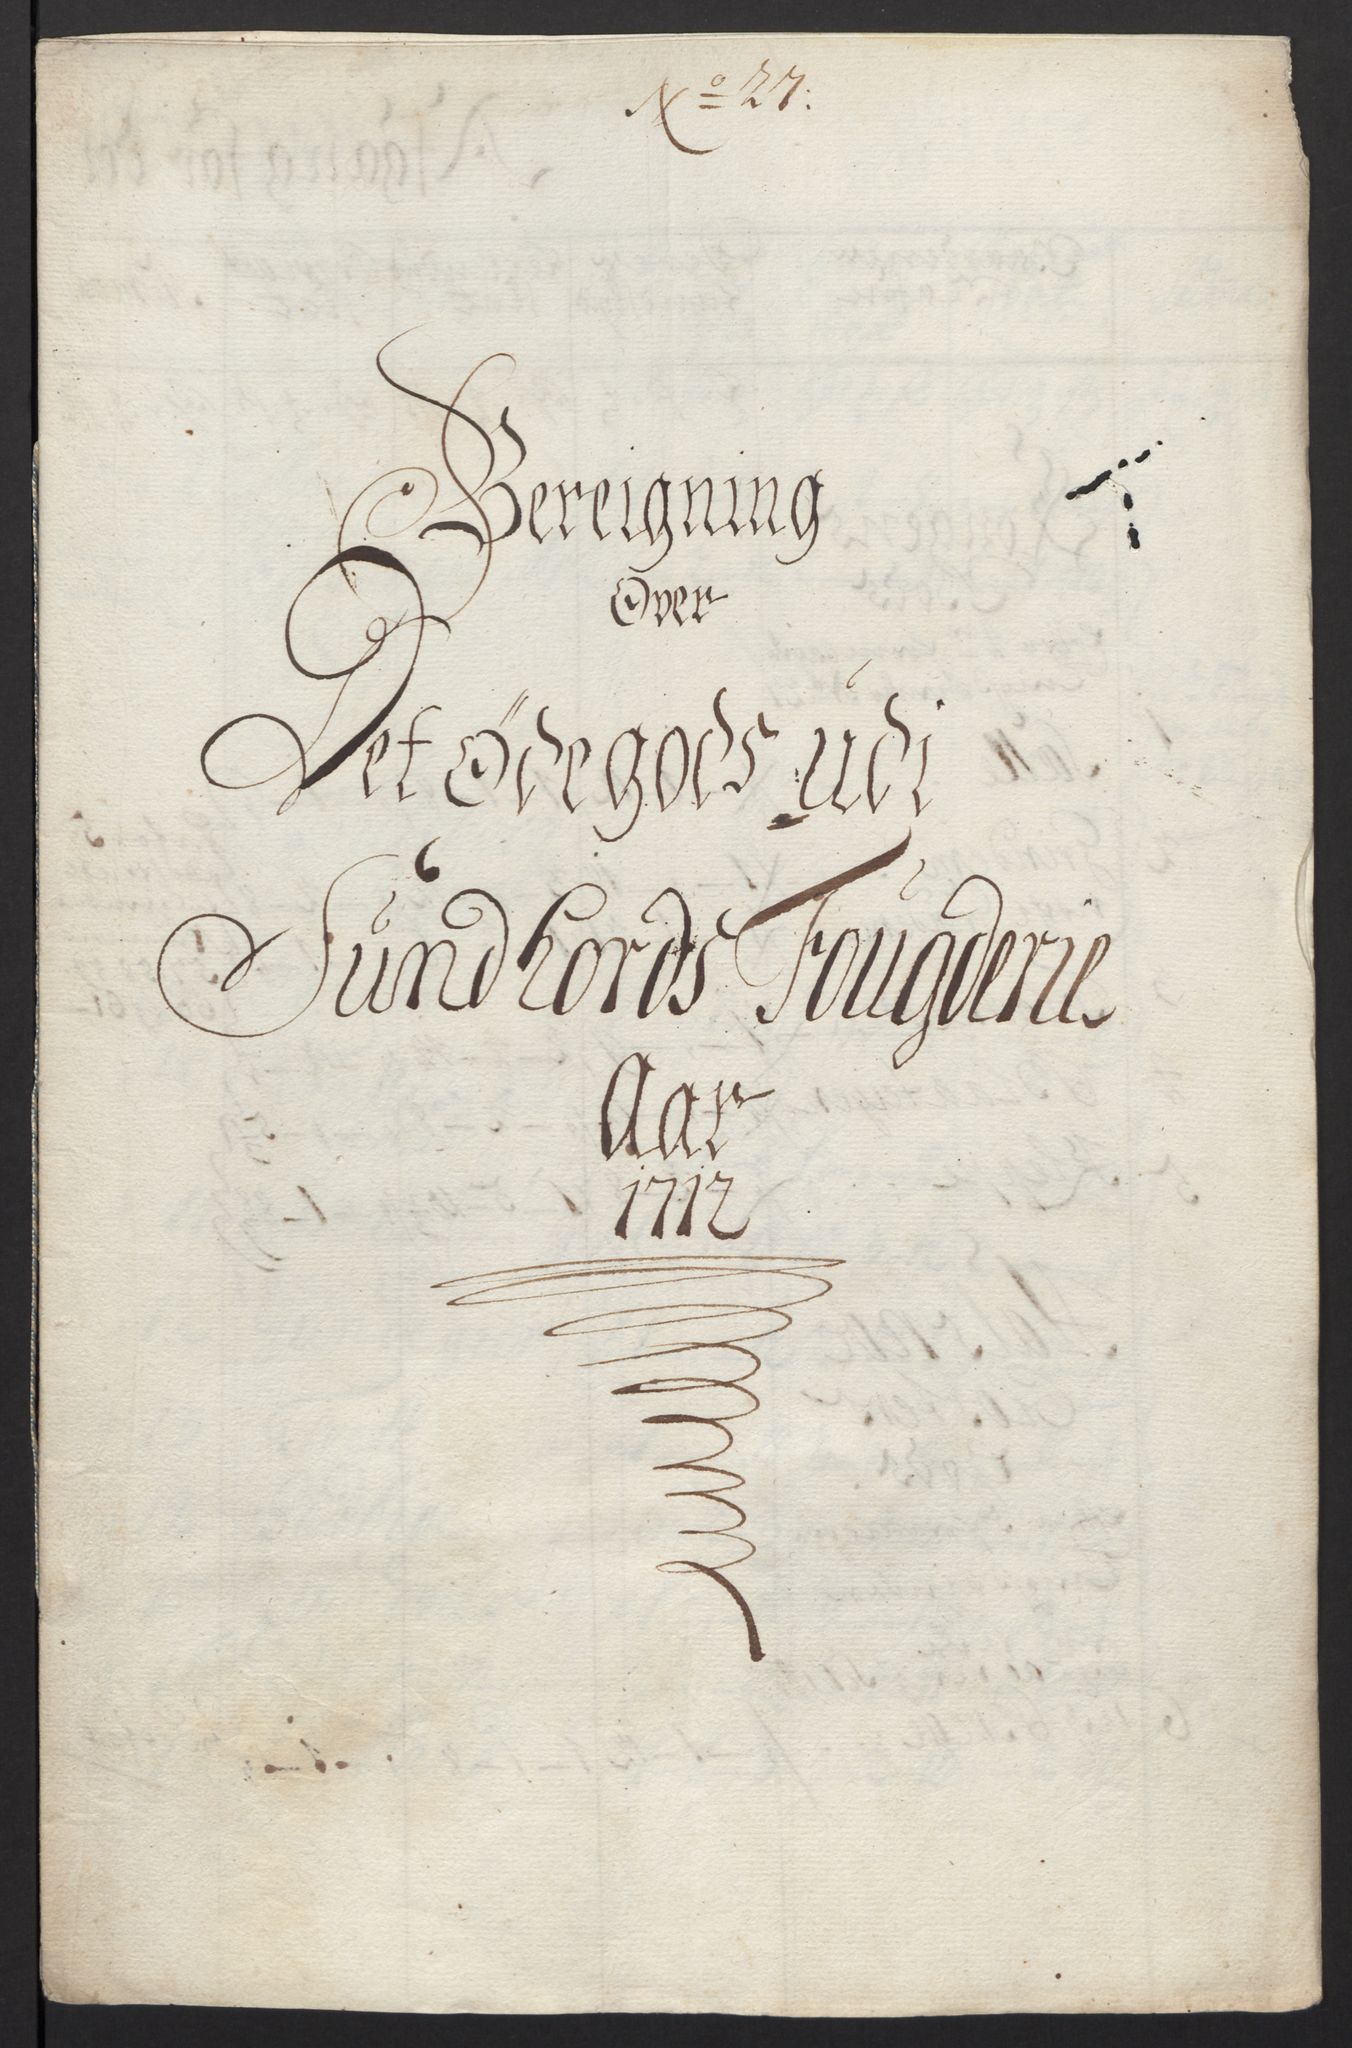 No 27:
Bereigning
Over
Det Ødegods udi
Sundhords Fougderie
Aar
1712